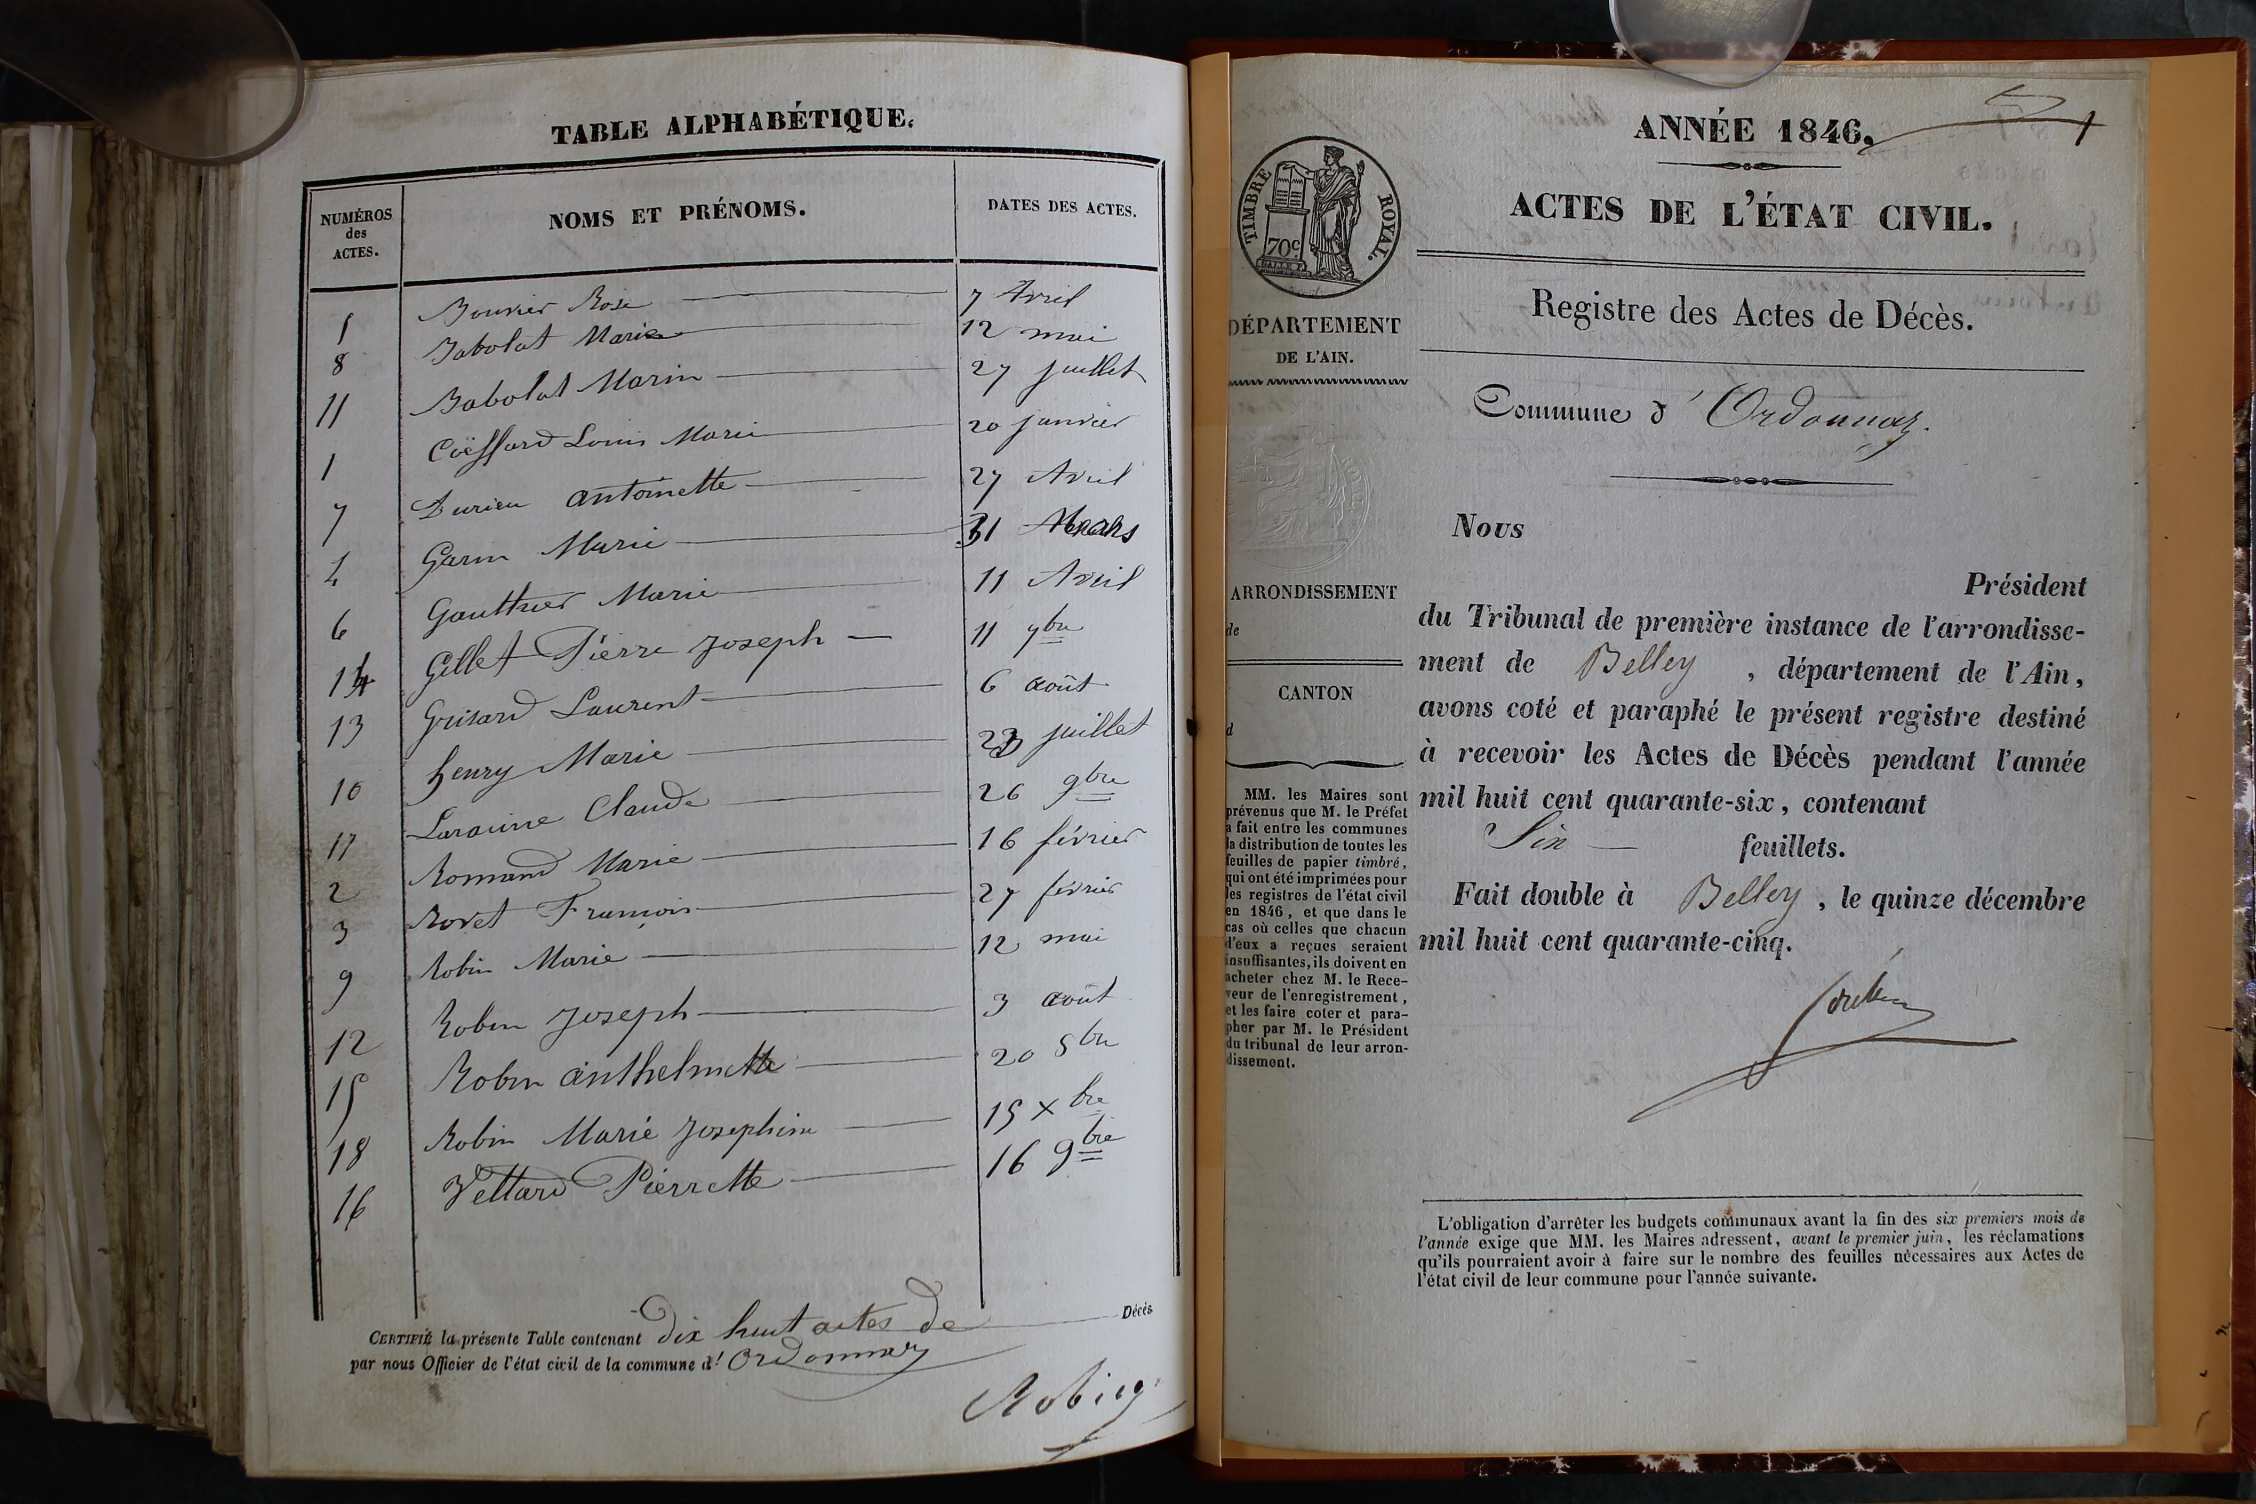 TABLE ALPHABÉTIQUE.
NUMÉROS des ACTES. NOMS ET PRÉNOMS. DATES DES ACTES.
5 Bouvier Rose 7 Avril
8 Babolat Marie 12 mai
11 Babolat Marin 27 juillet
1 Coëffard Louis Marie 20 janvier
7 Durieu antoinette 27 Avril
4 Garin Marie 31 Mars
6 Gauthier Marie 11 Avril
14 Gillet Pierre Joseph 11 7bre
13 Grisard Laurent 6 août
10 henry Marie 23 juillet
17 Laracine Claude 26 9bre
2 Romand Marie 16 février
3 Rovet François 27 février
9 Robin Marie 12 mai
12 Robin Joseph 3 août
15 Robin anthelmette 20 8bre
18 Robin Marie Josephine 15 xbre
16 Vettard Pierrette 16 9bre
CERTIFIÉ la présente Table contenant dix huit actes de Décès
par nous Officier de l'état civil de la commune d' Ordonnaz
Robin
1
ANNÉE 1846.
ACTES DE L'ÉTAT CIVIL.
TIMBRE ROYAL.
70c
Registre des Actes de Décès.
DÉPARTEMENT
DE L'AIN.
Commune d' Ordonnaz.
ARRONDISSEMENT
de
CANTON
d
MM. les Maires sont
prévenus que M. le Préfet
a fait entre les communes
la distribution de toutes les
feuilles de papier timbré,
qui ont été imprimées pour
les registres de l'état civil
en 1846, et que dans le
cas où celles que chacun
d'eux a reçues seraient
insuffisantes, ils doivent en
acheter chez M. le Rece-
veur de l'enregistrement,
et les faire coter et para-
pher par M. le Président
du tribunal de leur arron-
dissement.
Nous
Président
du Tribunal de première instance de l'arrondisse-
ment de Belley , département de l'Ain,
avons coté et paraphé le présent registre destiné
à recevoir les Actes de Décès pendant l'année
mil huit cent quarante-six, contenant
Six feuillets.
Fait double à Belley , le quinze décembre
mil huit cent quarante-cinq.
L'obligation d'arrêter les budgets communaux avant la fin des six premiers mois de
l'année exige que MM. les Maires adressent, avant le premier juin, les réclamations
qu'ils pourraient avoir à faire sur le nombre des feuilles nécessaires aux Actes de
l'état civil de leur commune pour l'année suivante.